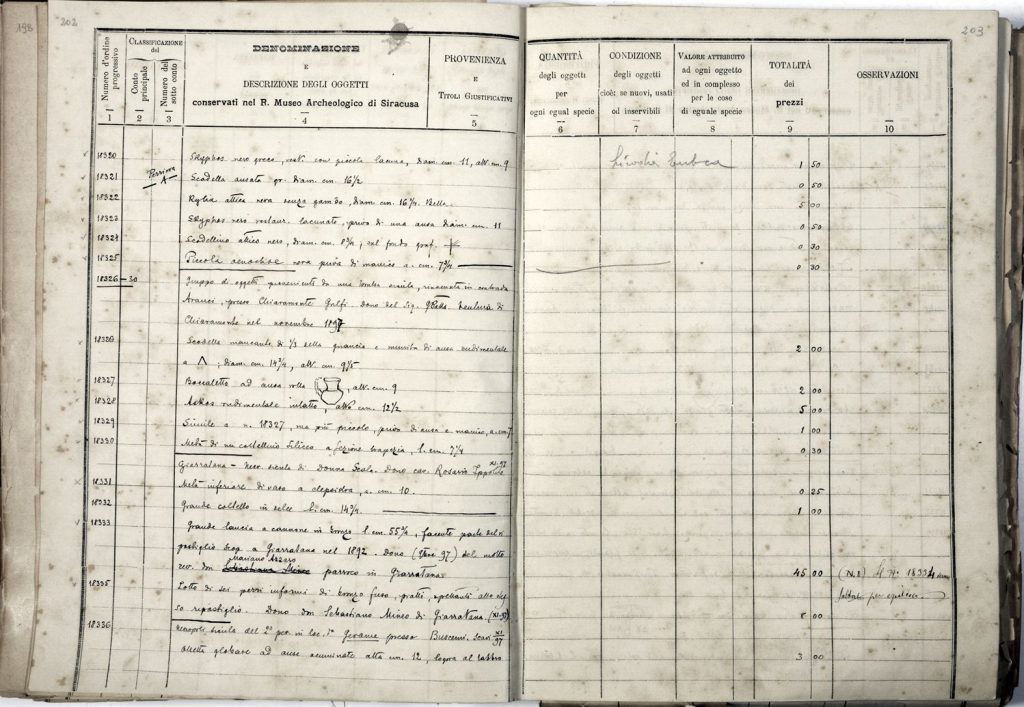 198
202
203
Numero d'ordine progressivo
CLASSIFICAZIONE
del
Conto principale
Numero del sotto conto
DENOMINAZIONE
E
DESCRIZIONE DEGLI OGGETTI
conservati nel R. Museo Archeologico di Siracusa
PROVENIENZA
E
TITOLI GIUSTIFICATIVI
QUANTITÀ
degli oggetti
per
ogni egual specie
CONDIZIONE
degli oggetti
cioè: se nuovi, usati
od inservibili
VALORE ATTRIBUITO
ad ogni oggetto
ed in complesso
per le cose
di eguale specie
TOTALITÀ
dei
prezzi
OSSERVAZIONI
1 2 3 4 5 6 7 8 9 10
18320 Skyphos nero greco, con piccola lacuna, diam. cm. 11, alt. cm. 9 1 50
18321 Scodella ansata gr. diam. cm. 16½ 0 50
18322 Kylix attica nera senza gambo, diam. cm. 16¼. Bella. 5 00
18323 Skyphos nero restaur. lacunato, privo di una ansa diam. cm. 11 0 50
18324 Scodellino attico nero, diam. cm. 8¾, sul fondo graf. 0 70
18325 Piccola oenochoe nera priva di manico a. cm. 7¾ 0 30
18326-30 Gruppo di oggetti provenienti da una tomba sicula, rinvenuta in contrada
Aranci, presso Chiaramonte Gulfi. Dono del Sig. di
Chiaramonte nel novembre 1897
18326 Scodella mancante di ⅓ della e munita di ansa rudimentale 2 00
a Λ; diam. cm. 14¾, alt. cm.
18327 Boccaletto ad ansa rotta, alt. cm. 9 2 00
18328 Askos rudimentale intatto, alto cm. 12½ 5 00
18329 Simile a n. 18327, ma più piccolo, privo di ansa e manico, a. cm. 7 1 00
18330 Metà di un coltellino siliceo a sezione trapezia, l. cm. 7¼ 0 30
Giarratana - Necr. sicula di Donna Scala. Dono cav. Rosario Ippolito XI.97
18331 Metà inferiore di vaso a clepsidra, a. cm. 10. 0 25
18332 Grande coltello in selce l. cm. 14¾. 1 00
18333 Grande lancia a cannone in bronzo l. cm. 55¾, facente parte del ri
postiglio scop. a Giarratana nel 1892. Dono del molto
rev. don Mariano Azzaro parroco in Giarratana 45 00 (N.B.) Il N° 18334
18335 Lotto di sei pezzi informi di bronzo fuso, piatto, spettanti allo stes
so ripostiglio. Dono don Sebastiano Mineo di Giarratana (XI.97) 5 00
18336 Necropoli sicula del 2° per. in loc. presso Buscemi. Scavi XI 97
Olletta globare ad anse acuminate alta cm. 12, logora al labbro 3 00